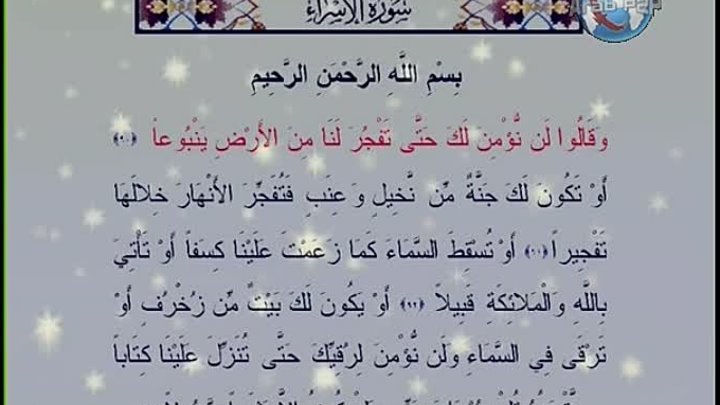 سُورَةُ الْإِسْرَاءِ
بِسْمِ اللَّهِ الرَّحْمَنِ الرَّحِيمِ
وَقَالُوا لَن نُّؤْمِنَ لَكَ حَتَّى تَفْجُرَ لَنَا مِنَ الأَرْضِ يَنْبُوعاً ﴿٩٠﴾
أَوْ تَكُونَ لَكَ جَنَّةٌ مِّن نَّخِيلٍ وَعِنَبٍ فَتُفَجِّرَ الأَنْهَارَ خِلالَهَا
تَفْجِيراً ﴿٩١﴾ أَوْ تُسْقِطَ السَّمَاءَ كَمَا زَعَمْتَ عَلَيْنَا كِسَفاً أَوْ تَأْتِيَ
بِاللَّهِ وَالْمَلائِكَةِ قَبِيلاً ﴿٩٢﴾ أَوْ يَكُونَ لَكَ بَيْتٌ مِّن زُخْرُفٍ أَوْ
تَرْقَى فِي السَّمَاءِ وَلَن نُّؤْمِنَ لِرُقِيِّكَ حَتَّى تُنَزِّلَ عَلَيْنَا كِتَاباً